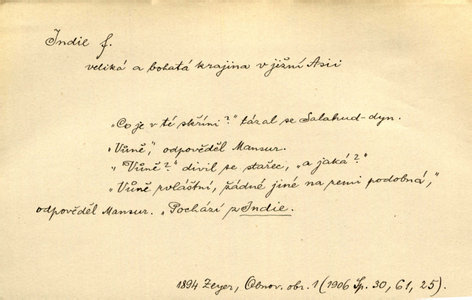 Indie f.
veliká a bohatá krajina v jižní Asii
„Co je v té skříni?" tázal se Salahud-dyn.
„Vůně," odpověděl Mansur.
„Vůně?" divil se stařec, „a jaká?"
„Vůně zvláštní, žádné jiné na zemi podobná,"
odpověděl Mansur. „Pochází z Indie.
1894 Zeyer, Obnov. obr. 1 (1906 Sp. 30, 61, 25).